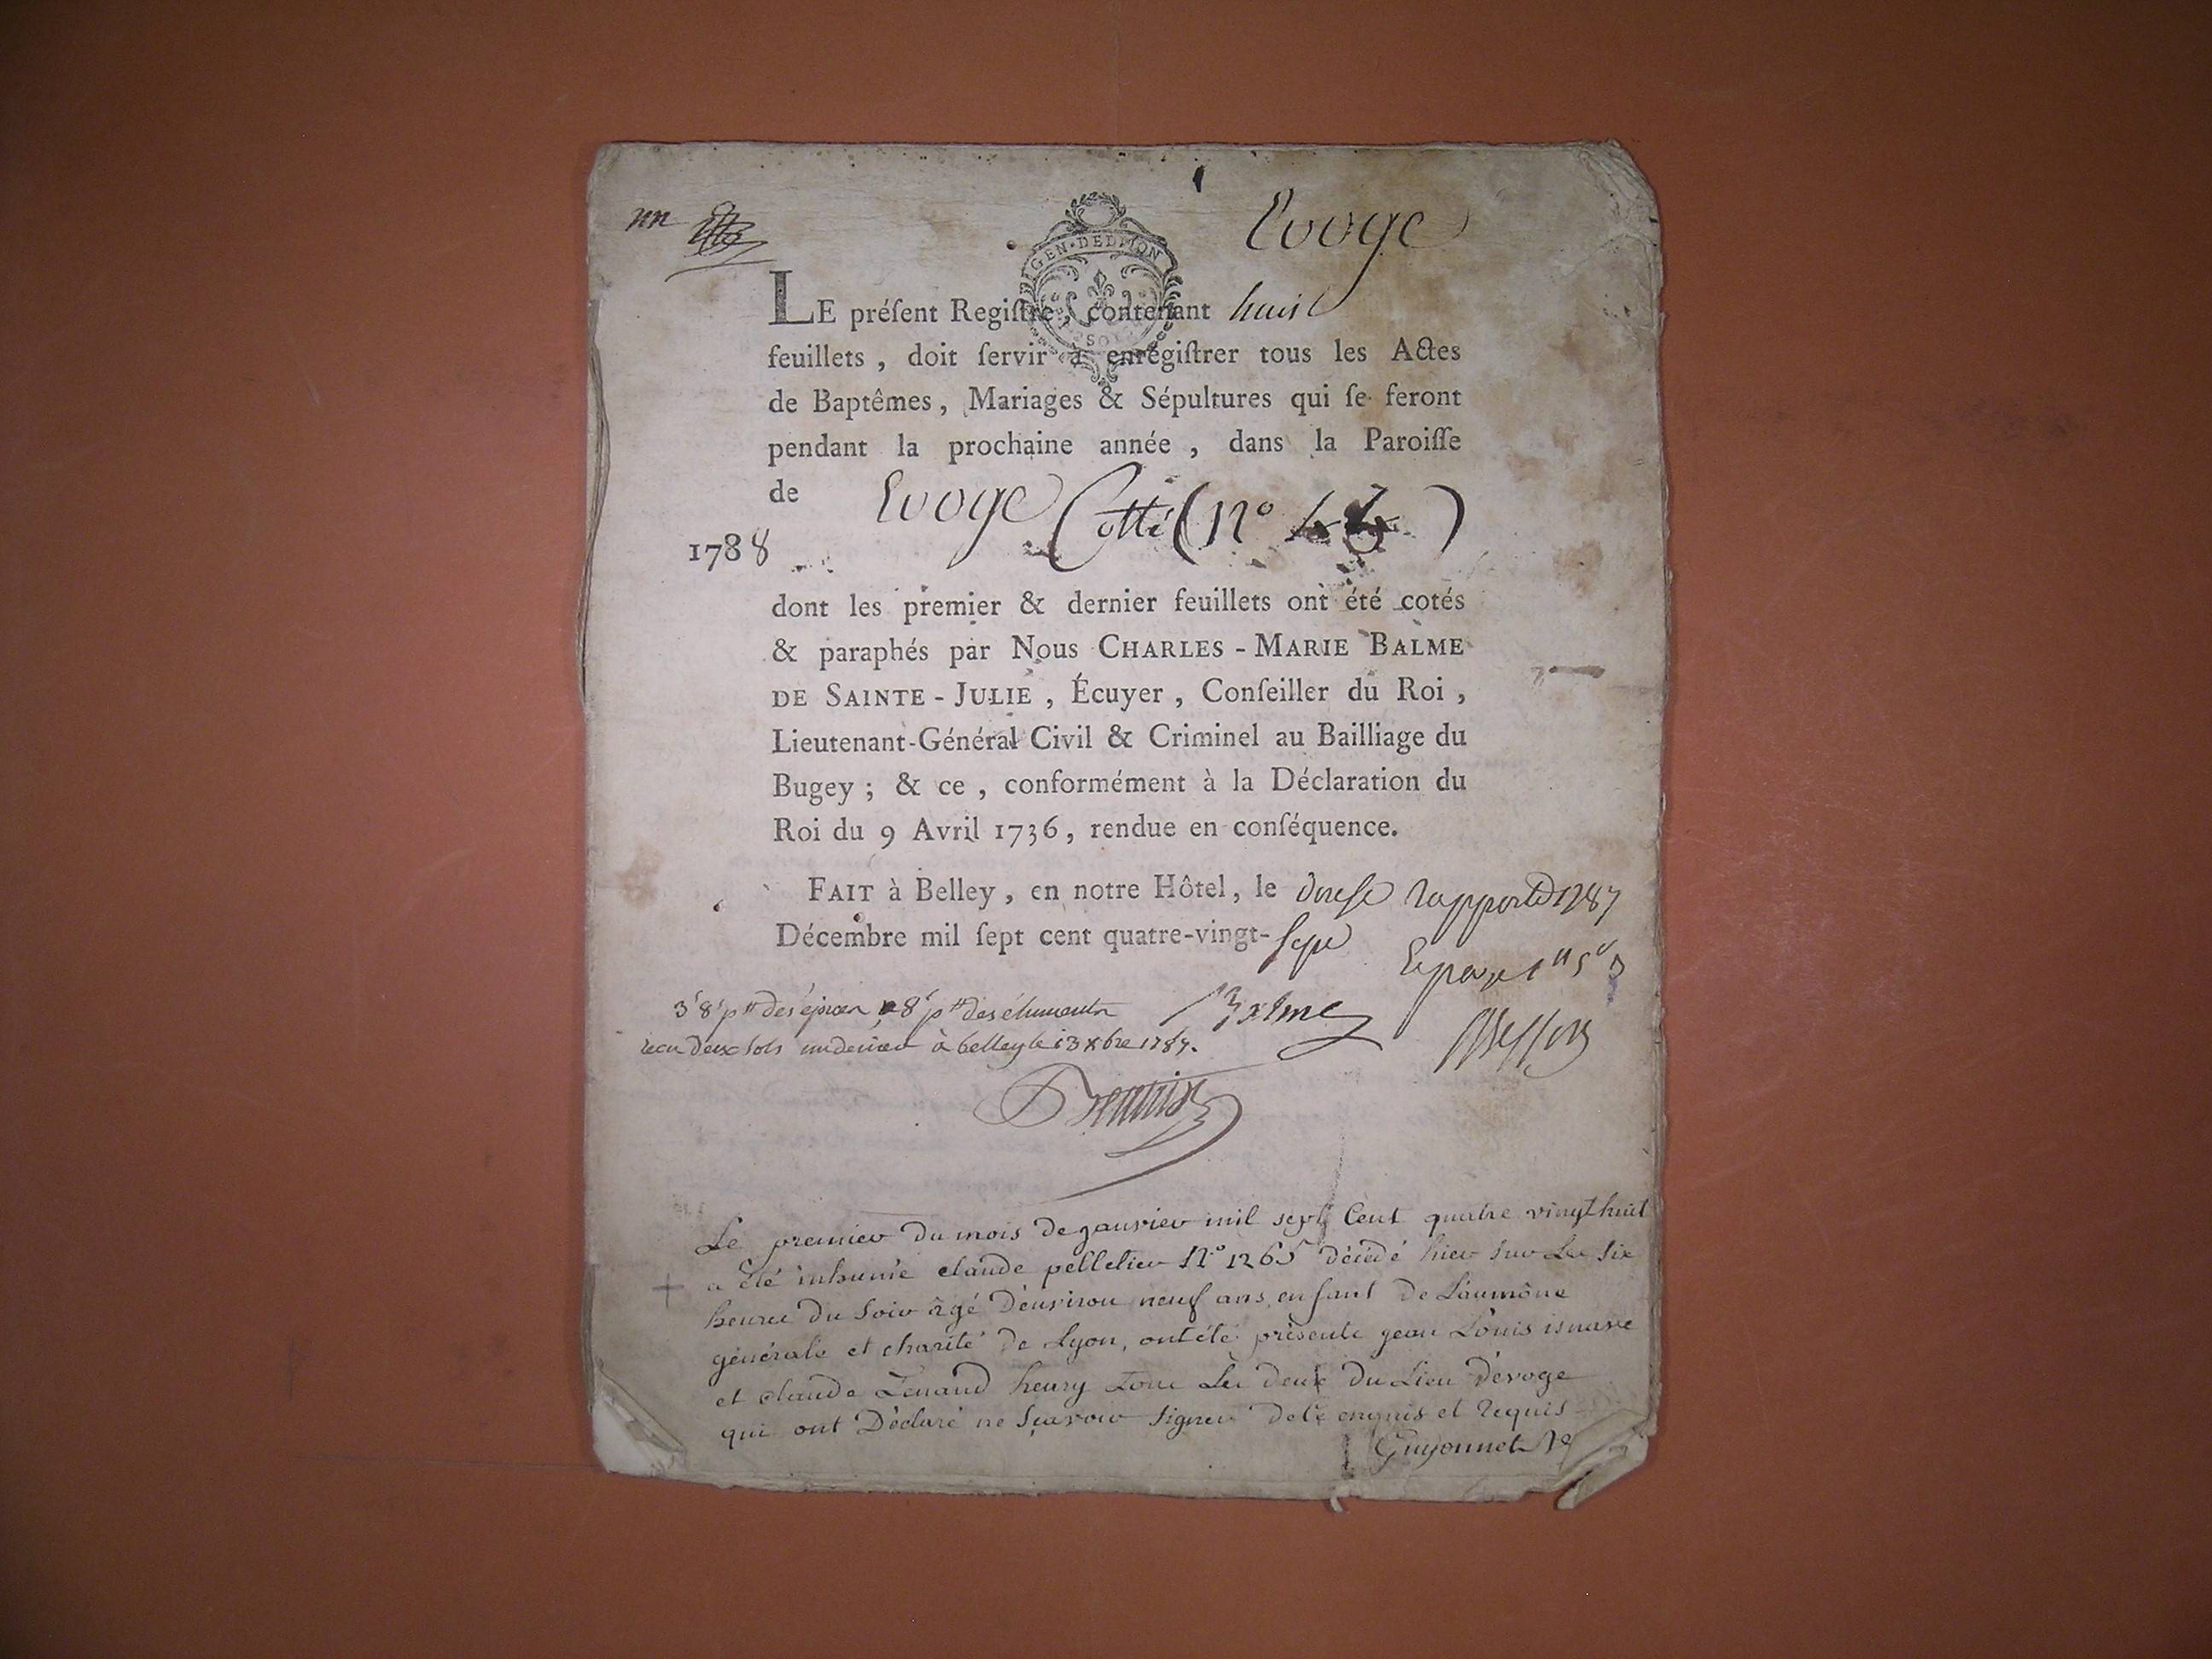 un
Evoge
GEN·DE DIJON
LE préſent Regiſtre, contenant huit
feuillets, doit ſervir à enregiſtrer tous les Actes
de Baptêmes, Mariages & Sépultures qui ſe feront
pendant la prochaine année, dans la Paroiſſe
de Evoge Cotté (n°
1788
dont les premier & dernier feuillets ont été cotés
& paraphés par Nous CHARLES-MARIE BALME
DE SAINTE-JULIE, Écuyer, Conſeiller du Roi,
Lieutenant-Général Civil & Criminel au Bailliage du
Bugey; & ce, conformément à la Déclaration du
Roi du 9 Avril 1736, rendue en conſéquence.
FAIT à Belley, en notre Hôtel, le douſe rapporté 1787
Décembre mil ſept cent quatre-vingt-sept
Balme
recu deux sols un denier à belley le 13 xbre 1787.
Le premier du mois de janvier mil sept Cent quatre vingt huit
a été inhumé claude pelletier N° 1265 décédé hier sur Les six
heures du soir âgé d'environ neuf ans, enfant de L'aumône
générale et charité de Lyon, ont été présents jean Louis
et claude henry tous Les deux du Lieu d'evoge
qui ont Déclaré ne sçavoir signer de ce enquis et requis
Guyonnet